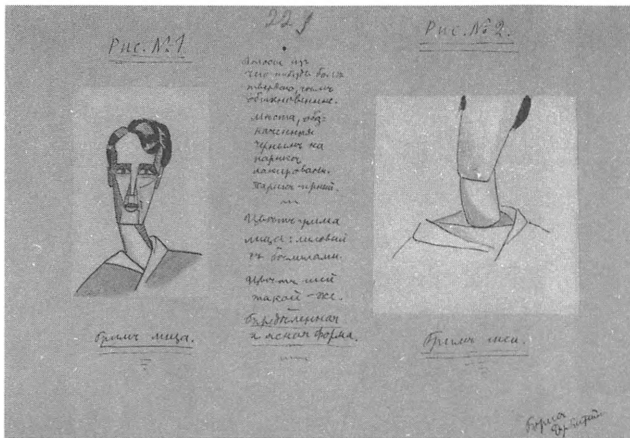 229
Рис. №1.
Рис. № 2.
изъ
чего нибудь болѣе
твердаго, чѣмъ
обыкновенные.
мѣста, обоз-
наченныя
чернымъ на
парикѣ
лакировать.
Парикъ
Цвѣтъ грима
лица: лиловый
съ бѣлилами.
Цвѣтъ шеи
такой-же.
и ясная форма.
Гримъ лица.
Гримъ шеи.
Борисъ